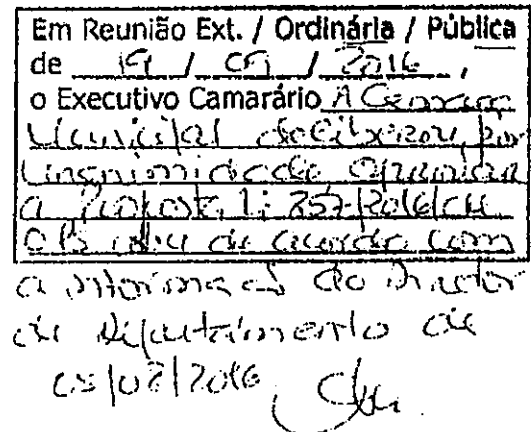 Em Reunião Ext. / Ordinária / Pública
de 19 / 09 / 2016 ,
o Executivo Camarário A Câmara
Municipal deliberou, por
unanimidade, aprovar
a Proposta 257/2016
de acordo com
a informação do Director
de Departamento de
/2016